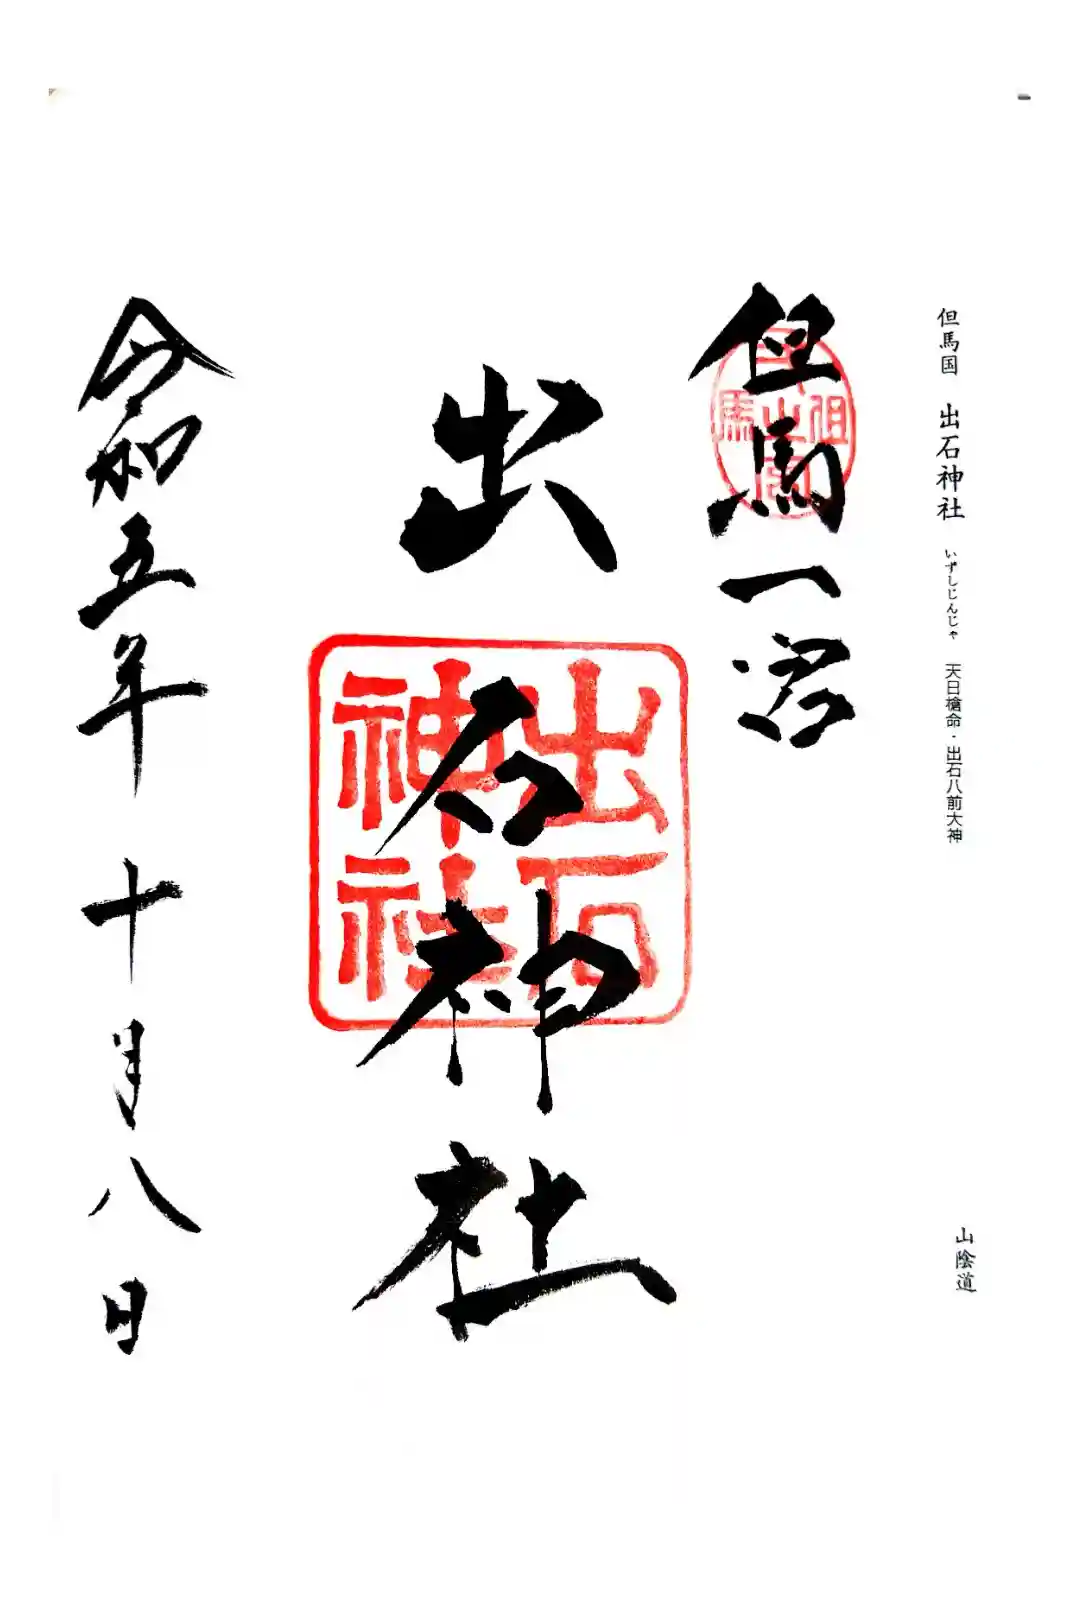 但馬国 出石神社 いずしじんじゃ 天日槍命・出石八前大神
山陰道
但馬一宮
出石神社
出石神社
令和五年十月八日